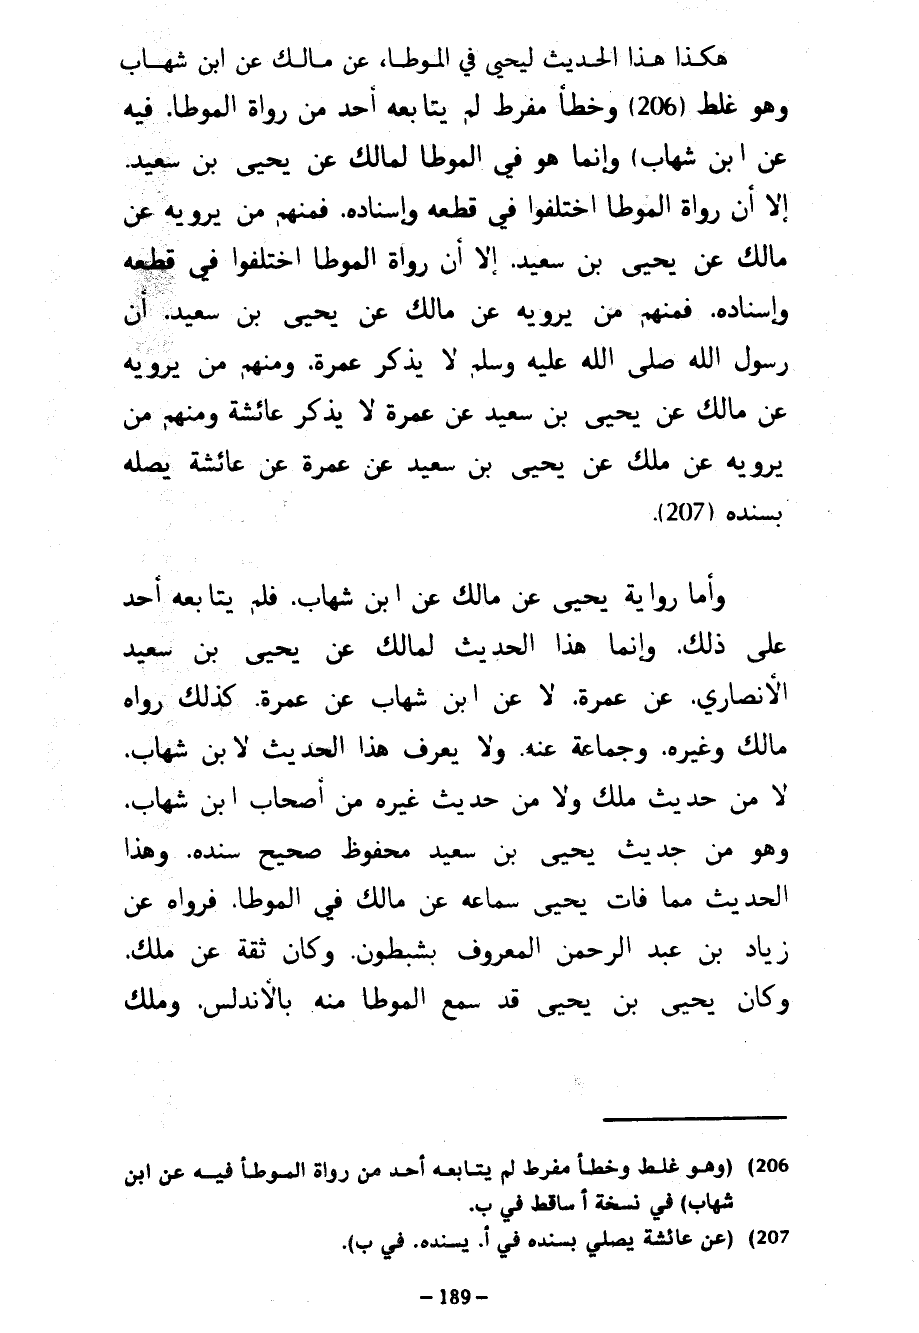 هكذا هذا الحديث ليحيى في الموطأ، عن مالك عن ابن شهاب
وهو غلط (206) وخطأ مفرط لم يتابعه أحد من رواة الموطا. فيه
عن ابن شهاب) وإنما هو في الموطا لمالك عن يحيى بن سعيد.
إلا أن رواة الموطا اختلفوا في قطعه وإسناده. فمنهم من يرويه عن
مالك عن يحيى بن سعيد. إلا أن رواة الموطا اختلفوا في قطعه
وإسناده. فمنهم من يرويه عن مالك عن يحيى بن سعيد. أن
رسول الله صلى الله عليه وسلم لا يذكر عمرة. ومنهم من يرويه
عن مالك عن يحيى بن سعيد عن عمرة لا يذكر عائشة ومنهم من
يرويه عن ملك عن يحيى بن سعيد عن عمرة عن عائشة يصله
بسنده (207).
وأما رواية يحيى عن مالك عن ابن شهاب. فلم يتابعه أحد
على ذلك. وإنما هذا الحديث لمالك عن يحيى بن سعيد
الأنصاري. عن عمرة. لا عن ابن شهاب عن عمرة. كذلك رواه
مالك وغيره. وجماعة عنه. ولا يعرف هذا الحديث لابن شهاب.
لا من حديث ملك ولا من حديث غيره من أصحاب ابن شهاب.
وهو من حديث يحيى بن سعيد محفوظ صحيح سنده. وهذا
الحديث مما فات يحيى سماعه عن مالك في الموطا. فرواه عن
زياد بن عبد الرحمن المعروف بشبطون. وكان ثقة عن ملك.
وكان يحيى بن يحيى قد سمع الموطا منه بالأندلس. وملك
206) (وهو غلط وخطأ مفرط لم يتابعه أحد من رواة الموطأ فيه عن ابن
شهاب) في نسخة أ ساقط في ب.
207) (عن عائشة يصلي بسنده في أ. يسنده. في ب).
– 189 –